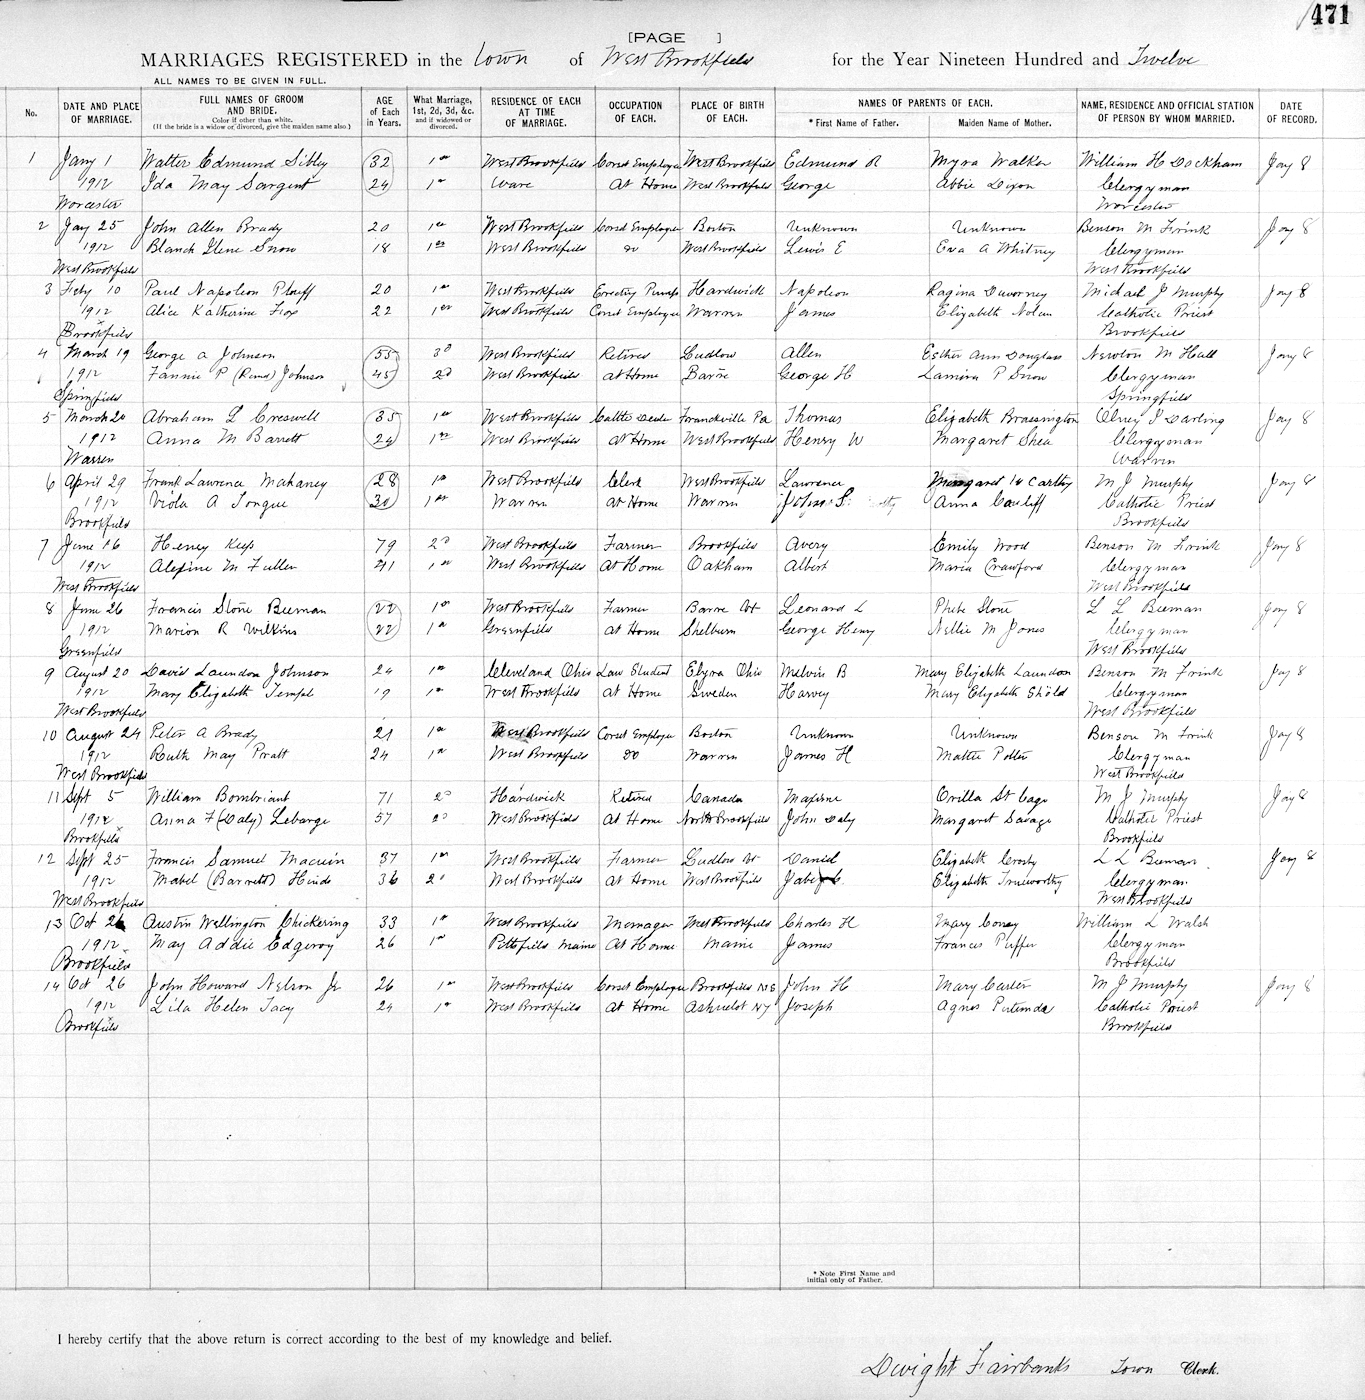 471
[PAGE ]
MARRIAGES REGISTERED in the Town of West Brookfield for the Year Nineteen Hundred and Twelve
ALL NAMES TO BE GIVEN IN FULL.
No. DATE AND PLACE OF MARRIAGE. FULL NAMES OF GROOM AND BRIDE. Color if other than white. (If the bride is a widow or divorced, give the maiden name also.) AGE of Each in Years. What Marriage, 1st, 2d, 3d, &c. and if widowed or divorced. RESIDENCE OF EACH AT TIME OF MARRIAGE. OCCUPATION OF EACH. PLACE OF BIRTH OF EACH. NAMES OF PARENTS OF EACH. * First Name of Father. Maiden Name of Mother. NAME, RESIDENCE AND OFFICIAL STATION OF PERSON BY WHOM MARRIED. DATE OF RECORD.
1 Jany 1 Walter Edmund Sibley 32 1st West Brookfield Corset Employee West Brookfield Edmund R Myra Walker William H Dockham Jany 8
1912 Ida May Sargent 24 1st Ware At Home West Brookfield George Abbie Dixon Clergyman
Worcester Worcester
2 Jay 25 John Allen Brady 20 1st West Brookfield Corset Employee Boston Unknown Unknown Benson M Frink Jany 8
1912 Blanch Ilene Snow 18 1st West Brookfield do West Brookfield Lewis E Eva A Whitney Clergyman
West Brookfield West Brookfield
3 Feby 10 Paul Napoleon Plouff 20 1st West Brookfield Erecting Pumps Hardwick Napoleon Ragina Duvorney Michael J Murphy Jany 8
1912 Alice Katherine Fox 22 1st West Brookfield Corset Employee Warren James Elizabeth Nolan Catholic Priest
Brookfield Brookfield
4 March 19 George A Johnson 55 3d West Brookfield Retired Ludlow Allen Esther Ann Douglass Newton M Hall Jany 8
1912 Fannie P Johnson 45 2d West Brookfield at Home Barre George H Lamira P Snow Clergyman
Springfield Springfield
5 March 20 Abraham L Creswell 35 1st West Brookfield Cattle Dealer Franckville Pa Thomas Elizabeth Brassington Olney I Darling Jany 8
1912 Anna M Barrett 24 1st West Brookfield At Home West Brookfield Henry W Margaret Shea Clergyman
Warren Warren
6 April 29 Frank Lawrence Mahaney 28 1st West Brookfield Clerk West Brookfield Lawrence Margaret Mc Carthy M J Murphy Jany 8
1912 Viola A Tongue 30 1st Warren at Home Warren Anna Cauliff Catholic Priest
Brookfield Brookfield
7 June 16 Henry Keep 79 2d West Brookfield Farmer Brookfield Avery Emily Wood Benson M Frink Jany 8
1912 Alefine M Fuller 41 1st West Brookfield At Home Oakham Albert Maria Crawford Clergyman
West Brookfield West Brookfield
8 June 26 Francis Stone Beeman 22 1st West Brookfield Farmer Barre Vt Leonard L Phebe Stone L L Beeman Jany 8
1912 Marion R Wilkins 22 1st Greenfield at Home Shelburn George Henry Nellie M Jones Clergyman
Greenfield West Brookfield
9 August 20 David Laundon Johnson 24 1st Cleveland Ohio Law Student Elyra Ohio Melvin B Mary Elizabeth Laundon Benson M Frink Jany 8
1912 Mary Elizabeth Tempel 19 1st West Brookfield at Home Sweden Harvey Mary Elizabeth Shold Clergyman
West Brookfield West Brookfield
10 August 24 Peter A Brady 21 1st West Brookfield Corset Employee Boston Unknown Unknown Benson M Frink Jany 8
1912 Ruth May Pratt 24 1st West Brookfield do Warren James H Mattie Potter Clergyman
West Brookfield West Brookfield
11 Sept 5 William Bombriant 71 2d Hardwick Retired Canada Maxime Orilla St Cage M J Murphy Jany 8
1912 Anna F (Daly) Lebarge 57 2d West Brookfield At Home North Brookfield John Daly Margaret Savage Catholic Priest
Brookfield Brookfield
12 Sept 25 Francis Samuel Macuin 37 1st West Brookfield Farmer Ludlow Vt Daniel Elizabeth Crosby L L Beeman Jany 8
1912 Mabel (Barrett) Hinds 36 2d West Brookfield At Home West Brookfield Jabez C. Elizabeth Trueworthy Clergyman
West Brookfield West Brookfield
13 Oct 26 Austin Wellington Chickering 33 1st West Brookfield Manager West Brookfield Charles H Mary Coney William L Walsh
1912 May Addie Edgeroy 26 1st Pittsfield Maine At Home Maine James Frances Puffer Clergyman
Brookfield Brookfield
14 Oct 26 John Howard Nelson Jr 26 1st West Brookfield Corset Employee Brookfield N S John H Mary Carter M J Murphy Jany 8
1912 Lila Helen Tacy 24 1st West Brookfield At Home Ashuelot NY Joseph Agnes Catholic Priest
Brookfield Brookfield
* Note First Name and
initial only of Father.
I hereby certify that the above return is correct according to the best of my knowledge and belief.
Dwight Fairbanks Town Clerk.